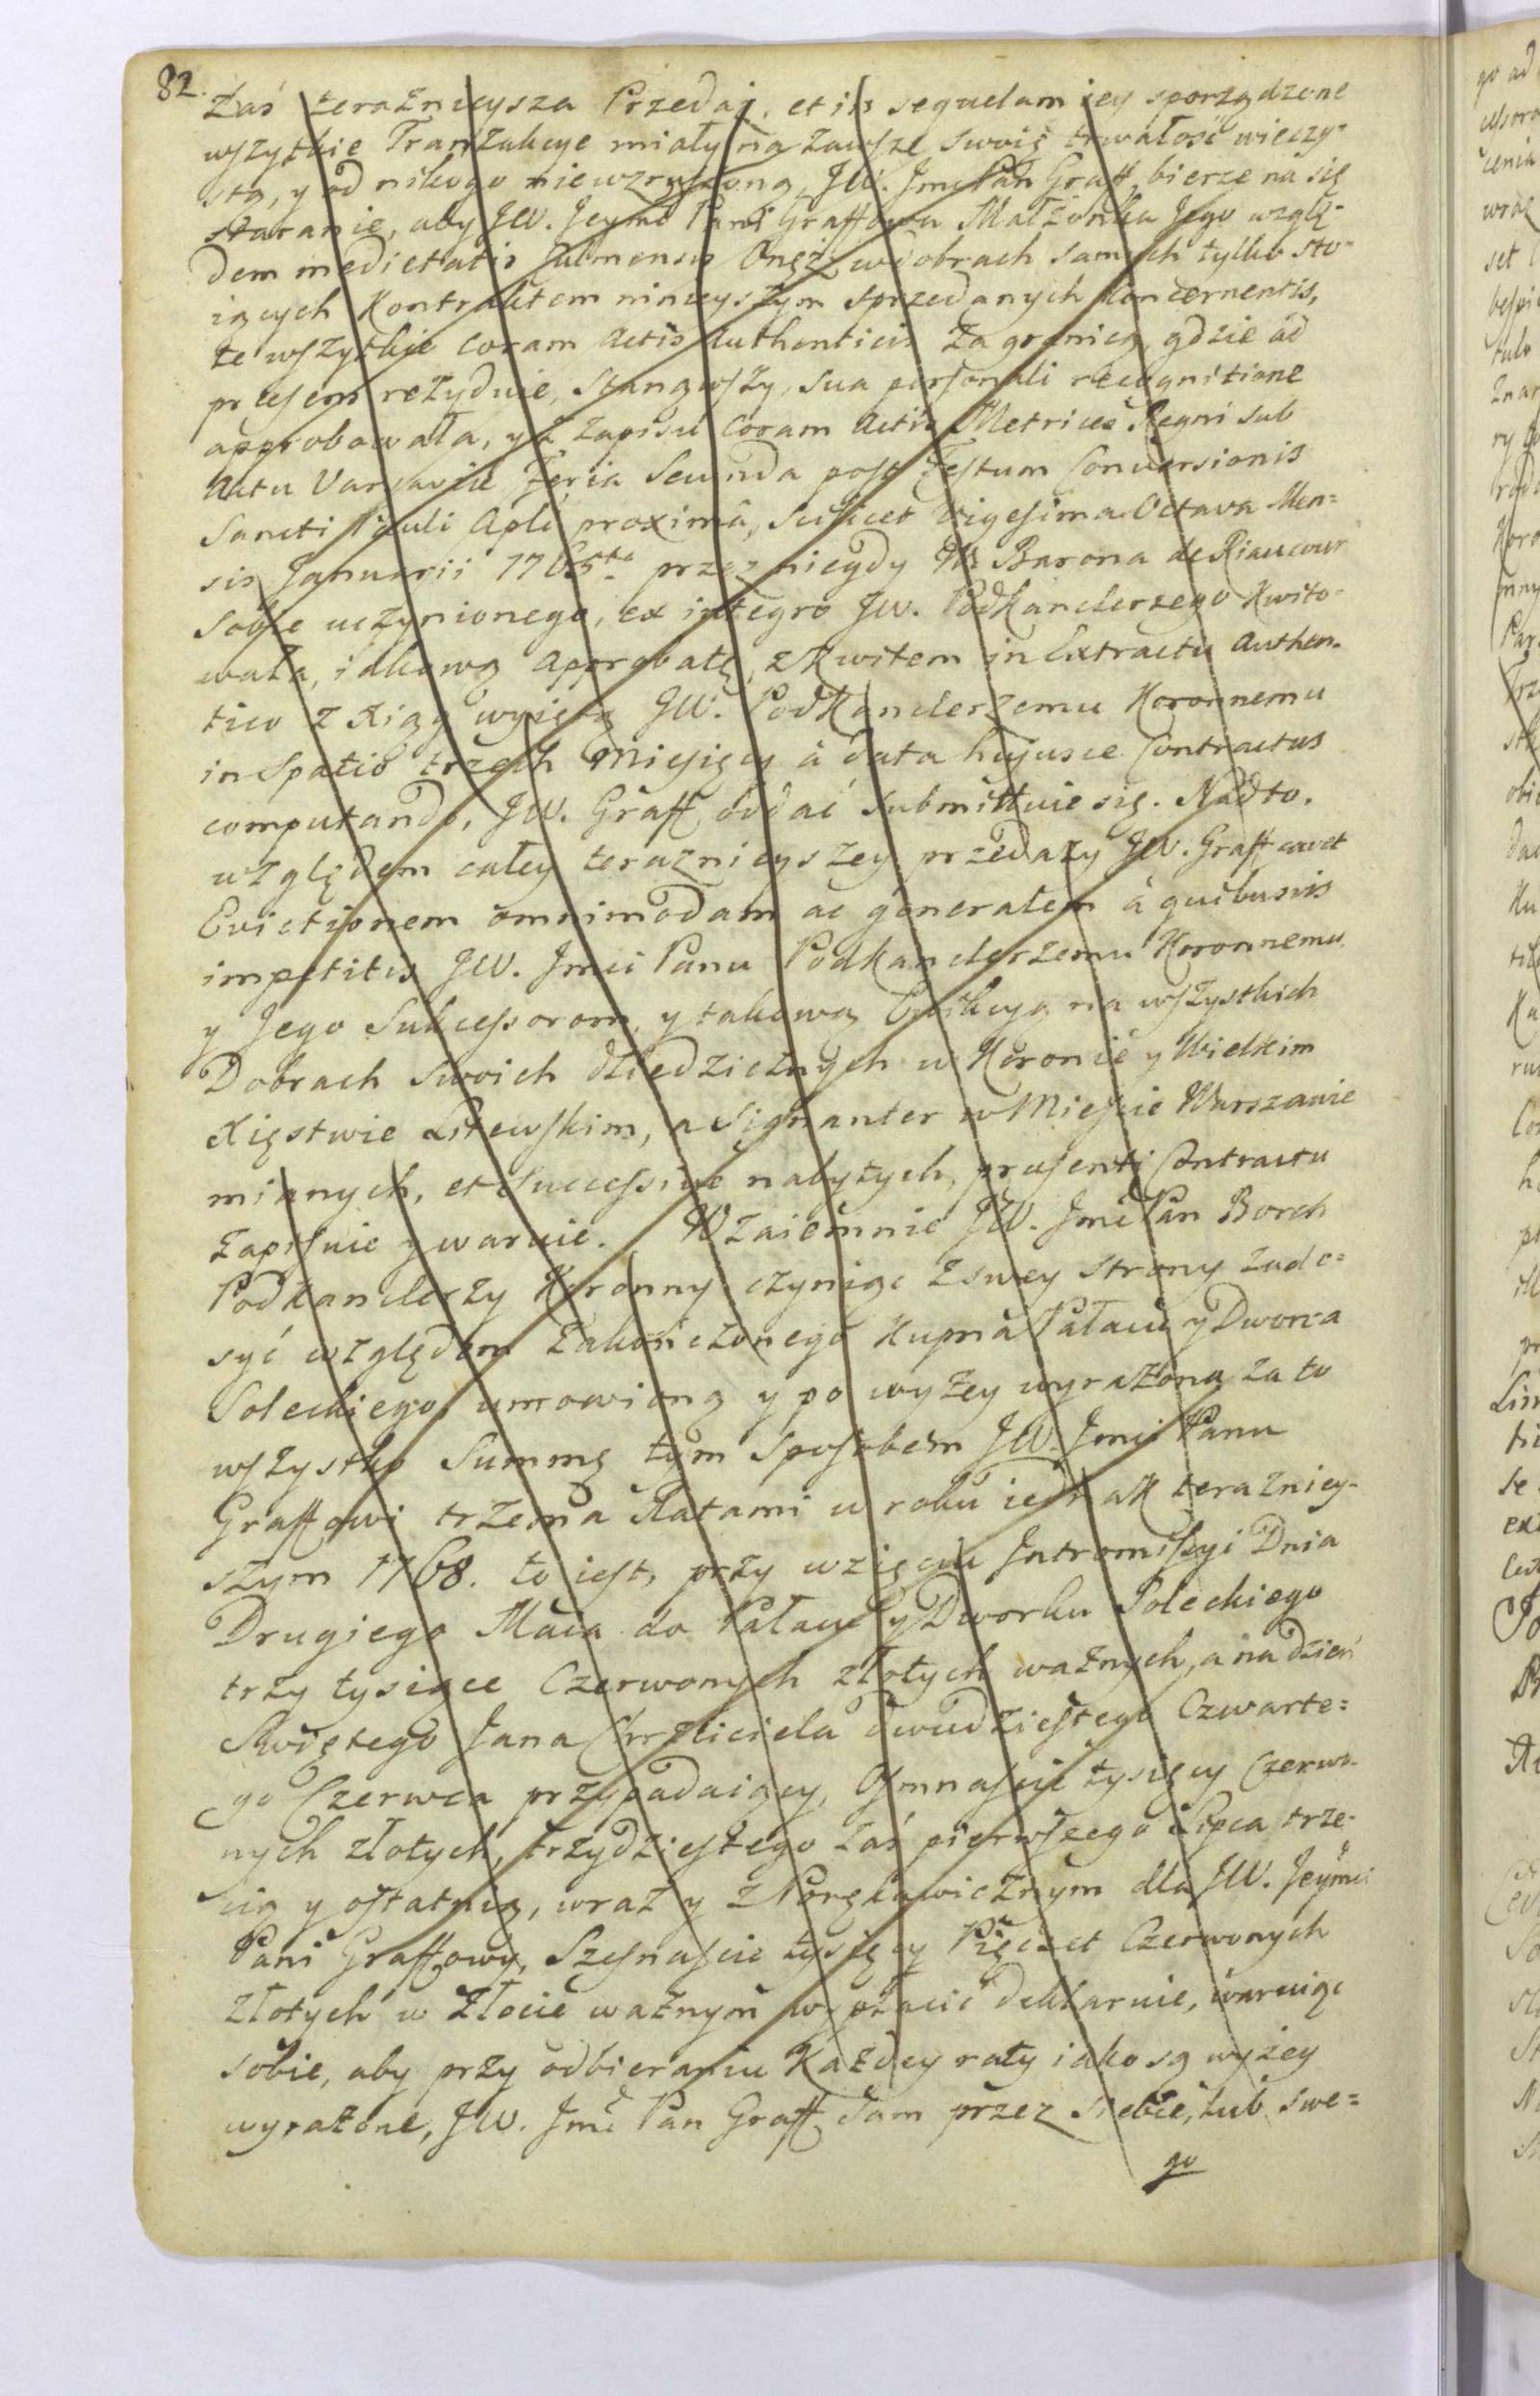 82.
Zaś teraznieysza Przedaż, et in sequelam iey sporządzone
wszytkie Tranzakcye miały na zawsze swoię trwałość wieczy-
stą, y od nikogo niewzruszoną, JW. Jmć Pan Graff, bierze na się
staranie, aby JW. Jeymć Pani Graffowa Małżonka Jego wzglę-
dem medietatis Onęż w dobrach samych tylko sto-
iących Kontraktem ninieyszym sprzedanych concernentis,
te wszytkie coram Actis Authenticis za granicą, gdzie ad
præsens rezyduie, stanąwszy, sua personali recognitione
approbowała, y z Zapisu Coram Actis Metrices Regni sub
Actu Varsaviæ Feria Secunda post Festum Conversionis
Sancti Pauli Apli proximâ, scilicet Vigesima Octava Men=
sis Januarii 1765ta przez niegdy Barona de Riaucour
sobie uczynionego, ex integro JW. Podkanclerzego kwito-
wała, iakową Approbatę, z Kwitem in Extractu Authen-
tico z Xiąg wyiętą JW. Podkanclerzemu Koronnemu
in Spatio trzech Miesięcy à data hujusce Contractus
computando, JW. Graff oddać submittuie się. Nadto.
względem całey teraznieyszey przedaży JW. Graff cavet
Evictionem omnimodam ac generalem à quibusvis
impetitis JW. Jmci Panu Podkanclerzemu Koronnemu
y Jego Sukcessorom, y takową Ewikcyą na wszystkich
Dobrach swoich dziedzicznych w Koronie y Wielkim
Xięstwie Litewskim, a signanter w Mieście Warszawie
mianych, et successive nabytych, præsenti Contractu
Zapisuie y waruie. Wzaiemnie JW. Jmć Pan Borch
Podkanclerzy Koronny czyniąc z swey strony zado=
syć względem Zakończonego Kupna Pałacu y Dworca
Soleckiego umowioną y po wyżey wyrażoną za to
wszystko Summę tym sposobem JW. Jmci Panu
Graffowi trzema Ratami w roku iednak teraźniey-
szym 1768. to iest, przy wzięciu Intromissyi Dnia
Drugiego Maia do Pałacu y Dworku Soleckiego
trzy tysiące Czerwonych złotych ważnych, a na dzień
Swiętego Jana Chrzciciela dwudziestego Czwarte=
go Czerwca przypadaiący, Osmnaście tysięcy Czerwo-
nych złotych, trzydziestego zaś pierwszego Lipca trze-
cią y ostatnią, wraz y z Porękawicznym dla JW. Jeymci
Pani Graffowy, Szesnaście tysięcy Pięćset Czerwonych
złotych w złocie ważnym wypłacić deklaruie, waruiąc
sobie, aby przy odbieraniu Każdey raty iako są wyżey
wyrażone, JW. Jmć Pan Graff sam przez siebie, lub swe=
go